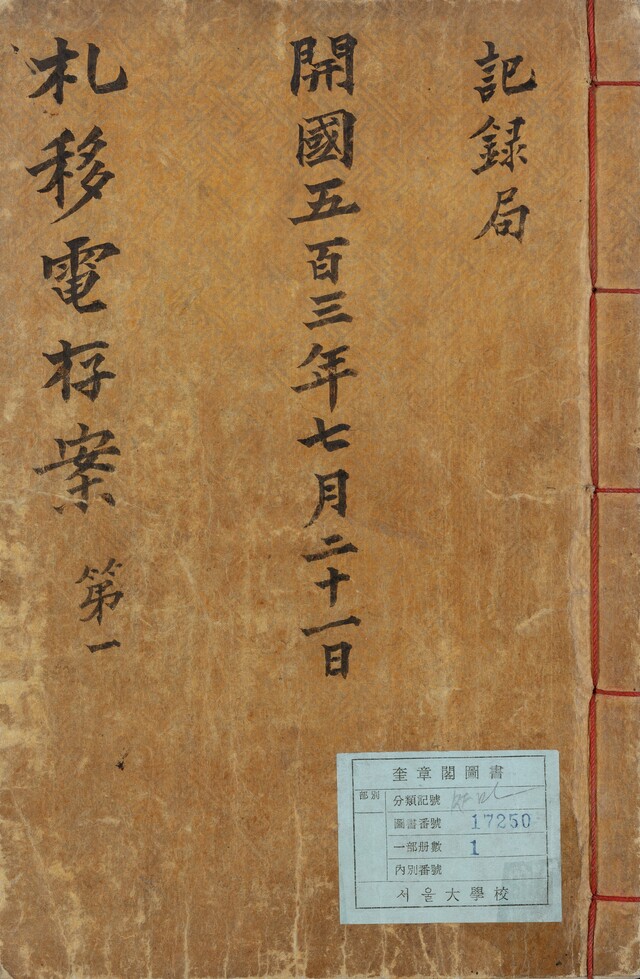 記録局
開國五百三年七月二十一日
札移電存案 第一
奎章閣圖書
部別
分類記號
圖書番號 17250
一部册數 1
內別番號
서울大學校